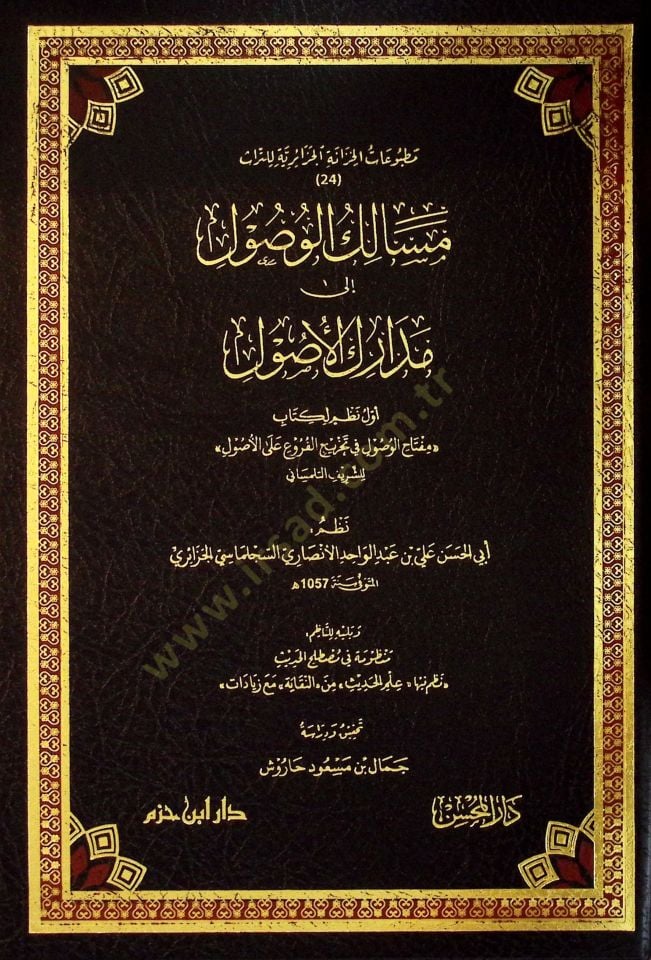 مطبوعات الخزانة الجزائرية للتراث
(24)
مسالك الوصول
إلى
مدارك الأصول
أول نظم لكتاب
«مفتاح الوصول في تخريج الفروع على الأصول»
للشريف التلمساني
نظم:
أبي الحسن علي بن عبد الواحد الأنصاري السجلماسي الجزائري
المتوفى سنة 1057 هـ
ويليه للناظم:
منظومة في مصطلح الحديث
«نظم فيها «علم الحديث» من «النقاية» مع زيادات»
تحقيق ودراسة
جمال بن مسعود حاروش
دار المحسن
دار ابن حزم
www.irsad.com.tr